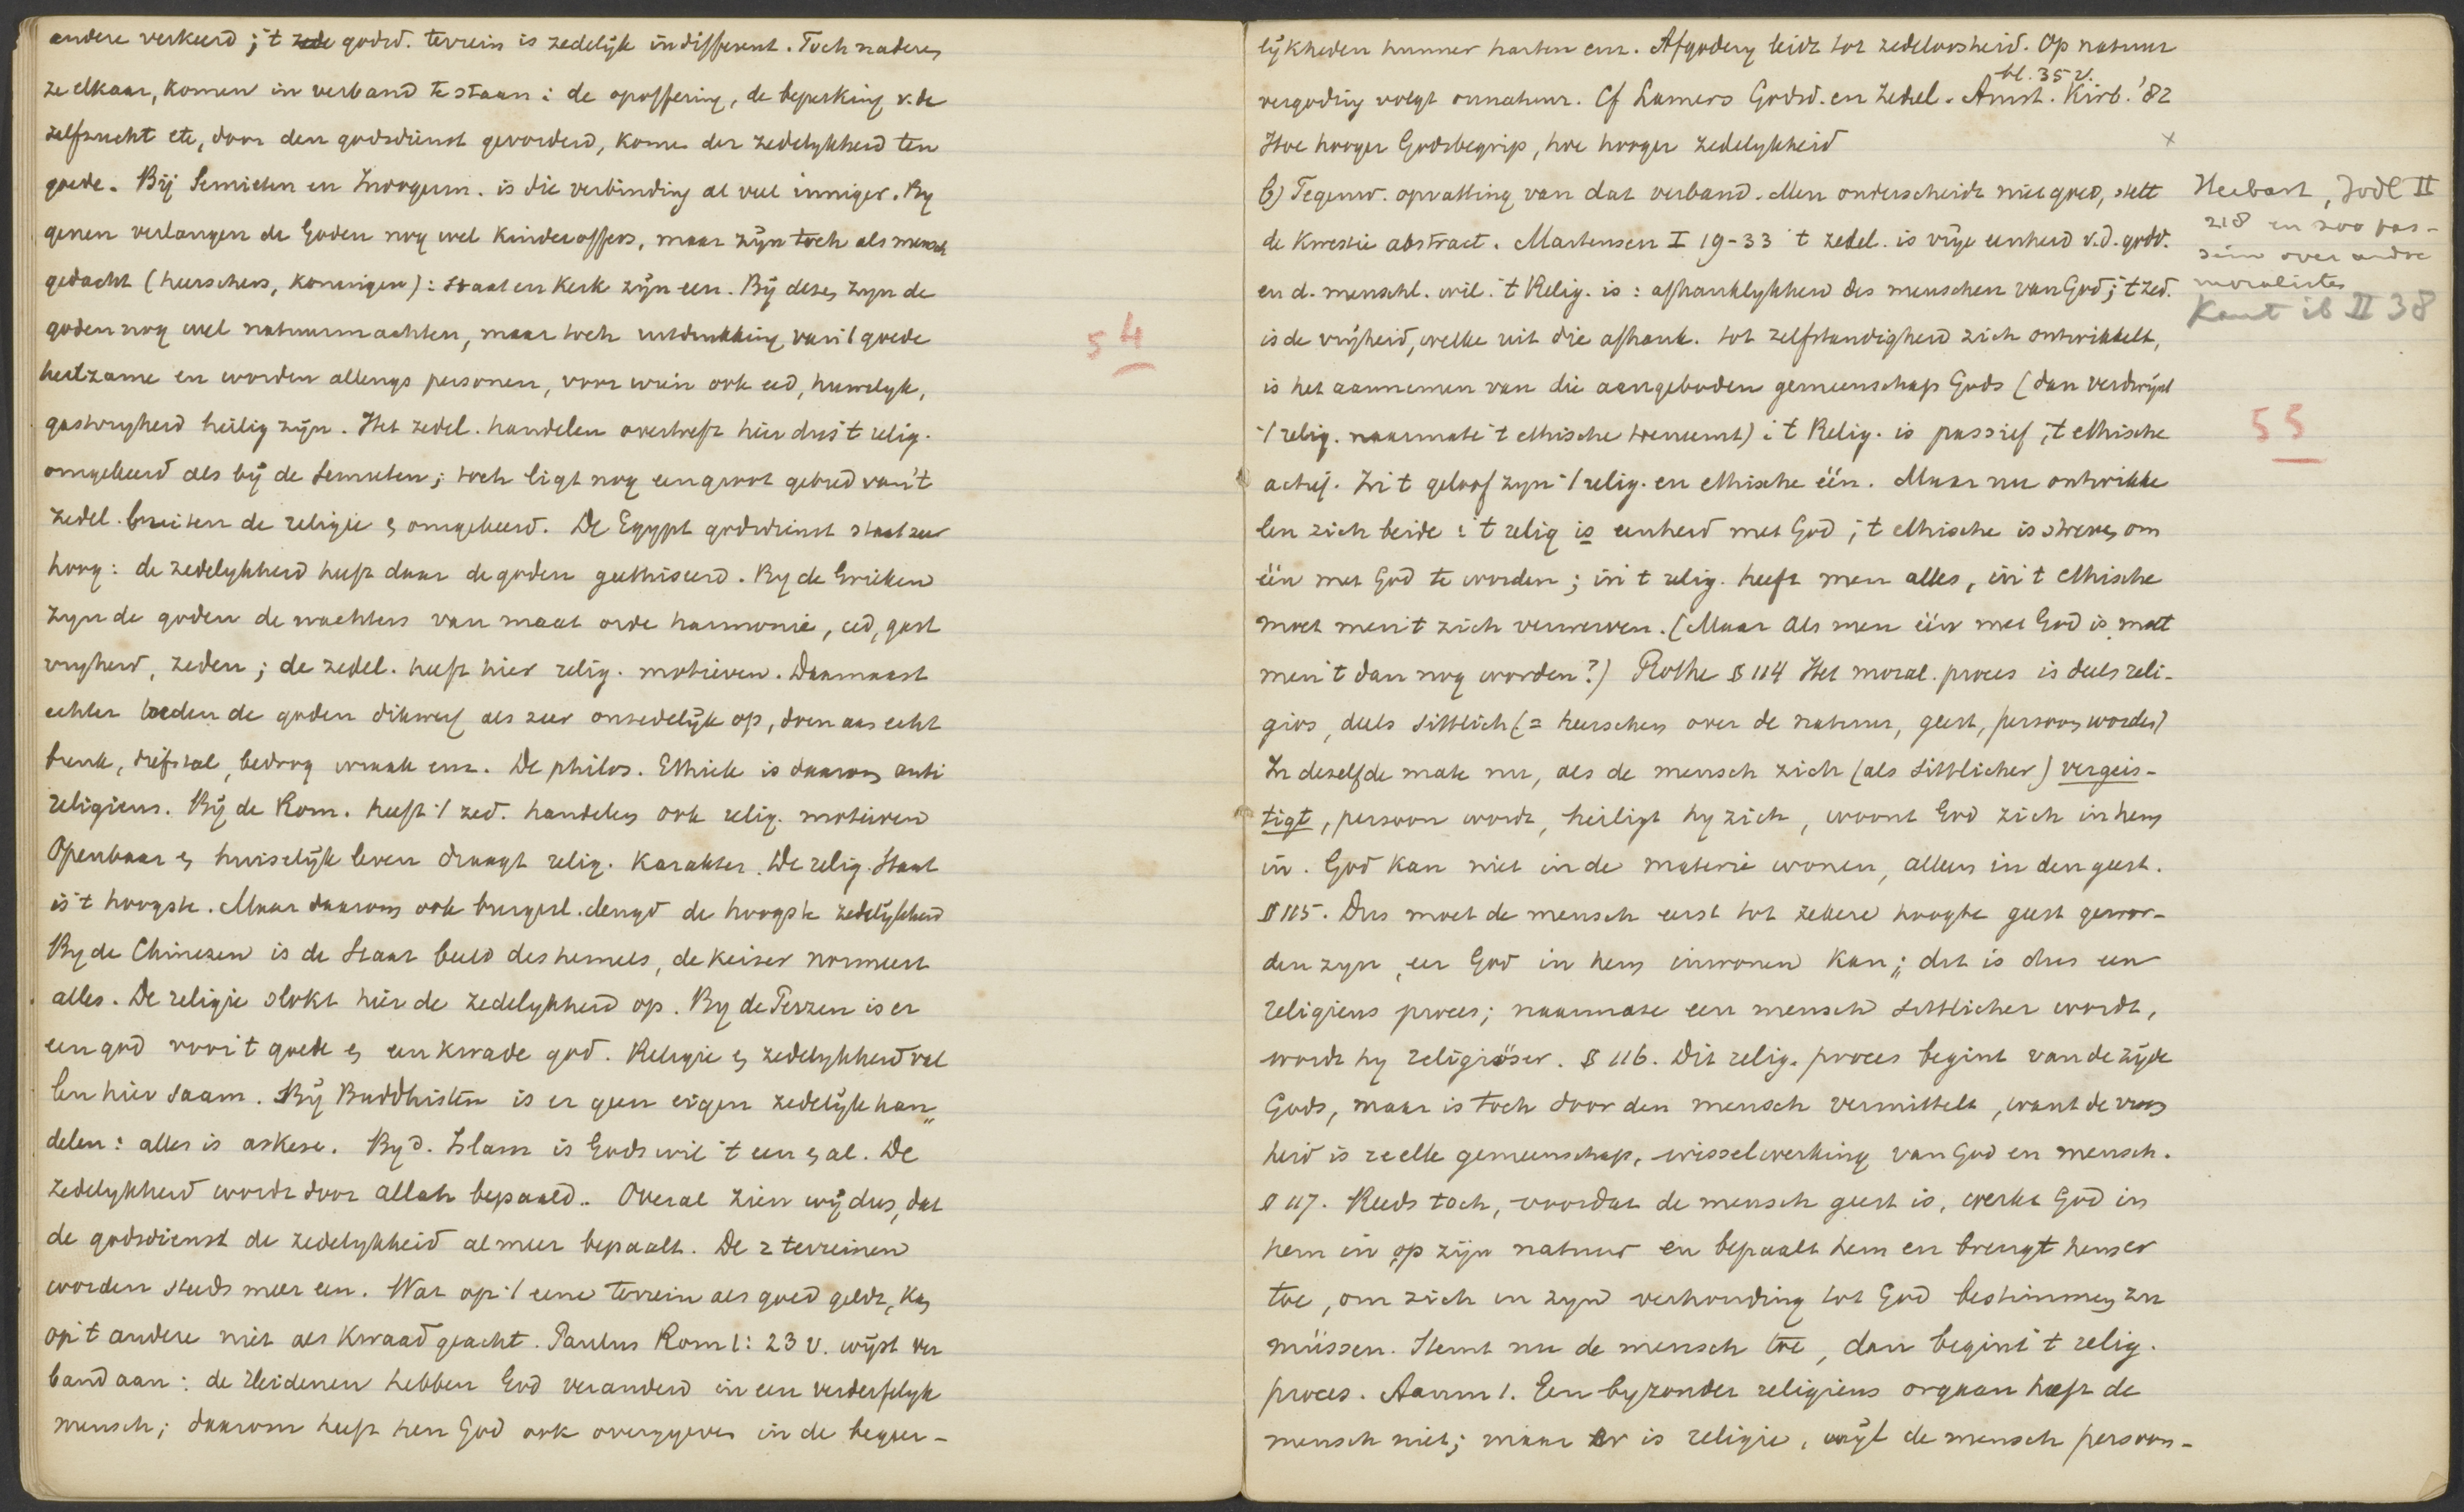 andere verkeerd; 't zede godsd. terrein is zedelijk indifferent. Toch naderen
ze elkaar, komen in verband te staan: de opoffering, de beperking v. de
zelfzucht etc, door den godsdienst gevorderd, komen der zedelykheid ten
goede. Bij Semieten en Indogerm. is die verbinding al veel inniger. By
genen verlangen de Goden nog wel kinderoffers, maar zijn toch als mensch
gedacht (heerschers, koningen): Staat en Kerk zijn een. Bij dezen zyn de
goden nog wel natuurmachten, maar toch uitdrukking van 't goede
heilzame en worden allengs personen, voor wien ook eed, huwelyk,
gastvryheid heilig zijn. Het zedel. handelen overtreft hier dus 't relig.
omgekeerd als bij de Semieten; toch ligt nog een groot gebied van 't
zedel. buiten de religie en omgekeerd. De Egypt godsdienst staat zeer
hoog: de zedelykheid heeft daar de goden geethiseerd. By de Grieken
zyn de goden de wachters van maat orde harmonie, eed, gast
vryheid, zeden; de zedel. heeft hier relig. motieven. Daarnaast
echter treden de goden dikwerf als zeer onzedelijk op, doen aan echt
breuk, diefstal, bedrog wraak enz. De philos. Ethiek is daarom anti
religieus. Bij de Rom. heeft 't zed. handelen ook relig. motieven
Openbaar en huiselijk leven draagt relig. karakter. De relig. Staat
is 't hoogste. Maar daarom ook burgerl. deugd de hoogste zedelijkheid
By de Chinezen is de Staat beeld des hemels, de keizer normeert
alles. De religie slokt hier de zedelykheid op. By de Perzen is er
een god voor 't goede en een kwade god. Religie en zedelykheid val
len hier saam. Bij Buddhisten is er geen eigen zedelijk han„
delen: alles is askese. By d. Islam is Gods wil 't een en al. De
zedelykheid wordt door allah bepaald. Overal zien wij dus, dat
de godsdienst de zedelykheid al meer bepaalt. De 2 terreinen
worden steeds meer een. Wat op 't eene terrein als goed geldt, kan
op 't andere niet als kwaad geacht. Paulus Rom 1: 23 v. wijst ver
band aan: de Heidenen hebben God veranderd in een verderfelyk
mensch; daarom heeft hen God ook overgegeven in de begeer-
54
lijkheden hunner harten enz. Afgodery leidt tot zedeloosheid. Op natuur
bl. 35 v.
vergoding volgt onnatuur. Cf Lamers Godsd. en Zedel. Amst. Kirb. '82
Hoe hooger Godsbegrip, hoe hooger zedelykheid x
b) Tegenw. opvatting van dat verband. Men onderscheidt niet goed, stelt
de kwestie abstract. Martensen I 19-33 't zedel. is vrije eenheid v. d. godd.
en d. menschl. wil. 't Relig. is: afhanklykheid des menschen van God; 't zed.
is de vrijheid, welke uit die afhank. tot zelfstandigheid zich ontwikkelt,
is het aannemen van die aangeboden gemeenschap Gods (dan verdwijnt
't relig. naarmate 't ethische toeneemt): 't Relig. is passief, 't ethische
actief. In 't geloof zyn 't relig. en ethische één. Maar nu ontwikke
len zich beide: 't relig is eenheid met God, 't ethische is streven om
één met God te worden; in 't relig. heeft men alles, in 't ethische
moet men 't zich verwerven. (Maar als men één met God is, moet
men 't dan nog worden?) Rothe § 114 Het moral. proces is deels reli-
gios, deels sittlich (= heerschen over de natuur, geest, persoon worden)
In dezelfde mate nu, als de mensch zich (als sittlicher) vergeis-
tigt, persoon wordt, heiligt hy zich, woont God zich in hem
in. God kan niet in de materie wonen, alleen in den geest.
§ 115. Dus moet de mensch eerst tot zekere hoogte geest gewor-
den zyn, eer God in hem inwonen kan; dit is dus een
religieus proces; naarmate een mensch sittlicher wordt,
wordt hy religiöser. § 116. Dit relig. proces begint van de zijde
Gods, maar is toch door den mensch vermittelt, want de vroom
heid is reëlle gemeenschap, wisselwerking van God en mensch.
§ 117. Reeds toch, voordat de mensch geest is, werkt God in
hem in op zijn natuur en bepaalt hem en brengt hem er
toe, om zich in zyn verhouding tot God bestimmen zu
müssen. Stemt nu de mensch toe, dan begint 't relig.
proces. Aanm 1. Een byzonder religieus orgaan heeft de
mensch niet; maar er is religie, wijl de mensch persoon-
Herbart, Jodl II
218 en zoo pas-
sim over andre
moralisten
Kant ib II 38
55